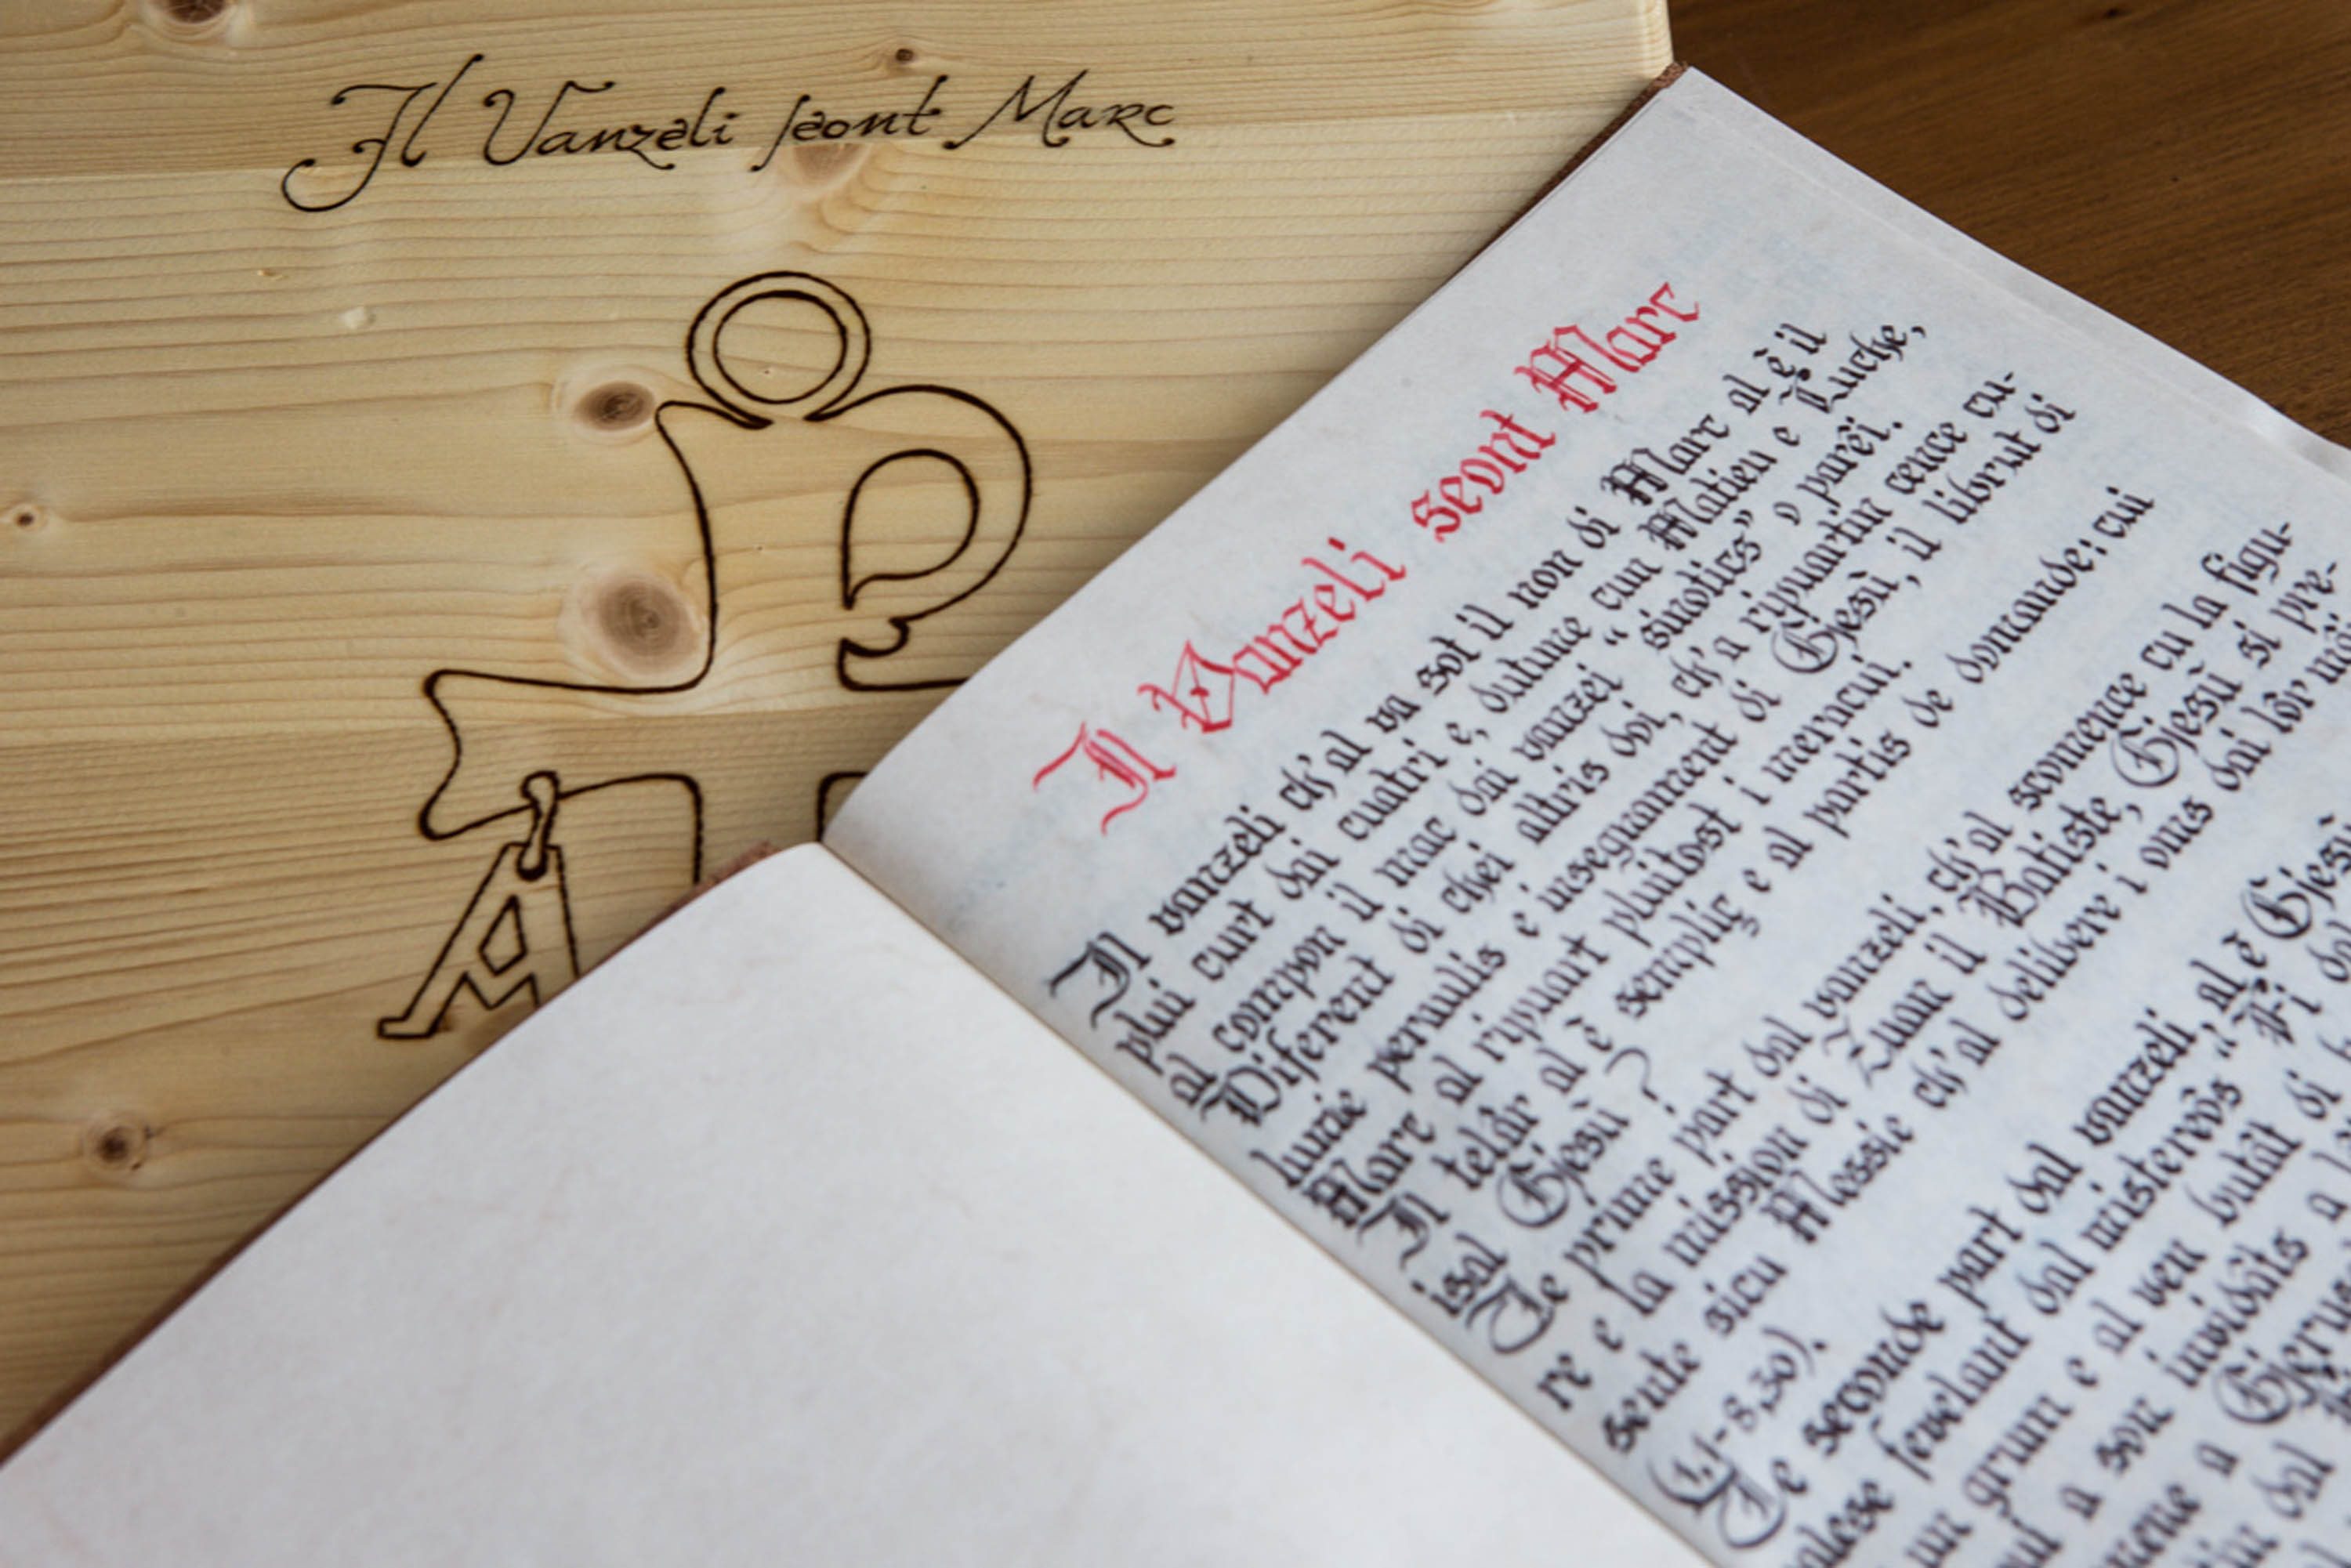 Il Vanzeli seont Marc
A
Il Vanzeli seont Marc
Il vanzeli ch'al va sot il non di Marc al è il
plui curt dai cuatri e, dutune cun Matieu e Luche,
al compon il mac dai vanzei "sinotics" o parêi.
Diferent di chei altris doi, ch'a ripuartin cence cu-
lunie peraulis e insegnament di Gjesù, il librut di
Marc al ripuart pluitost i meracui.
Il telâr al è sempliç e al partìs de domande: cui
isal Gjesù?
Te prime part dal vanzeli, ch'al scomence cu la figu-
re e la mission di Zuan il Batiste, Gjesù si pre-
sente sicu Messie ch'al delibere i oms dai lôr
(1,1-8,30).
Te seconde part dal vanzeli, al è Gjesù
fevelant dal misterêôs "Fi dal
un grum e al ven butât di
a son invidâts a
a
dal